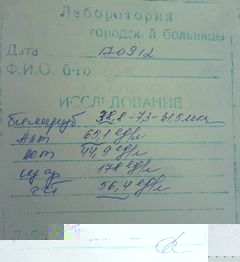 Лаборатория
городской больницы
Дата 170912
Ф.И.О. б-го
ИССЛЕДОВАНИЕ
билируб 38,8-7,3-31,5 мк
Алт 65,1 ед/л
Аст 44,9 ед/л
178 ед/л
56,4 ед/л